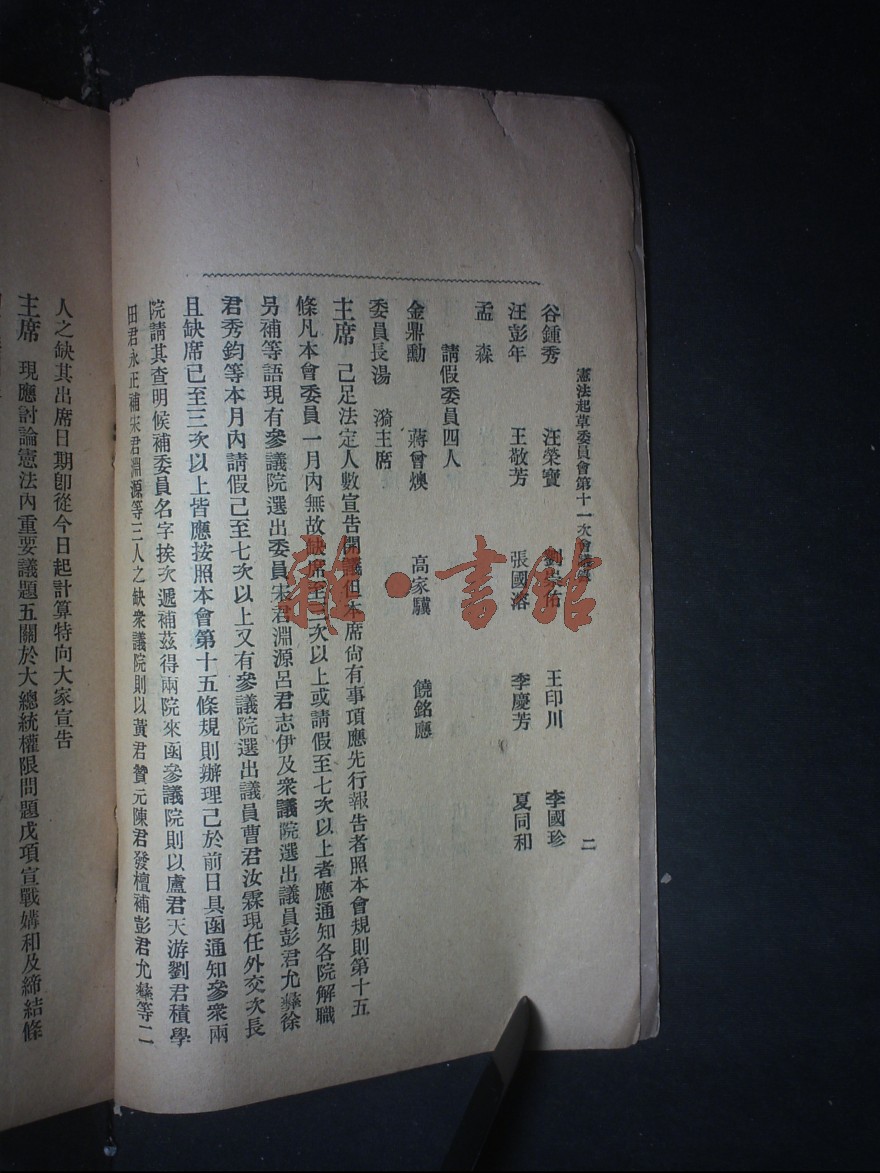 憲法起草委員會第十一次會議錄 二
谷鍾秀 汪榮寶 劉崇佑 王印川 李國珍
汪彭年 王敬芳 張國溶 李慶芳 夏同和
孟森
請假委員四人
金鼎勳 蔣曾燠 高家驥 饒銘應
委員長湯漪主席
主席 己足法定人數宣告開議但本席尙有事項應先行報告者照本會規則第十五
條凡本會委員一月內無故缺席至三次以上或請假至七次以上者應通知各院解職
另補等語現有參議院選出委員宋君淵源呂君志伊及衆議院選出議員彭君允彝徐
君秀鈞等本月內請假己至七次以上又有參議院選出議員曹君汝霖現任外交次長
且缺席已至三次以上皆應按照本會第十五條規則辦理己於前日具函通知參衆兩
院請其查明候補委員名字挨次遞補茲得兩院來函參議院則以盧君天游劉君積學
田君永正補宋君淵源等三人之缺衆議院則以黃君贊元陳君發檀補彭君允彝等二
人之缺其出席日期卽從今日起計算特向大家宣告
主席 現應討論憲法內重要議題五關於大總統權限問題戊項宣戰媾和及締結條
雜·書館